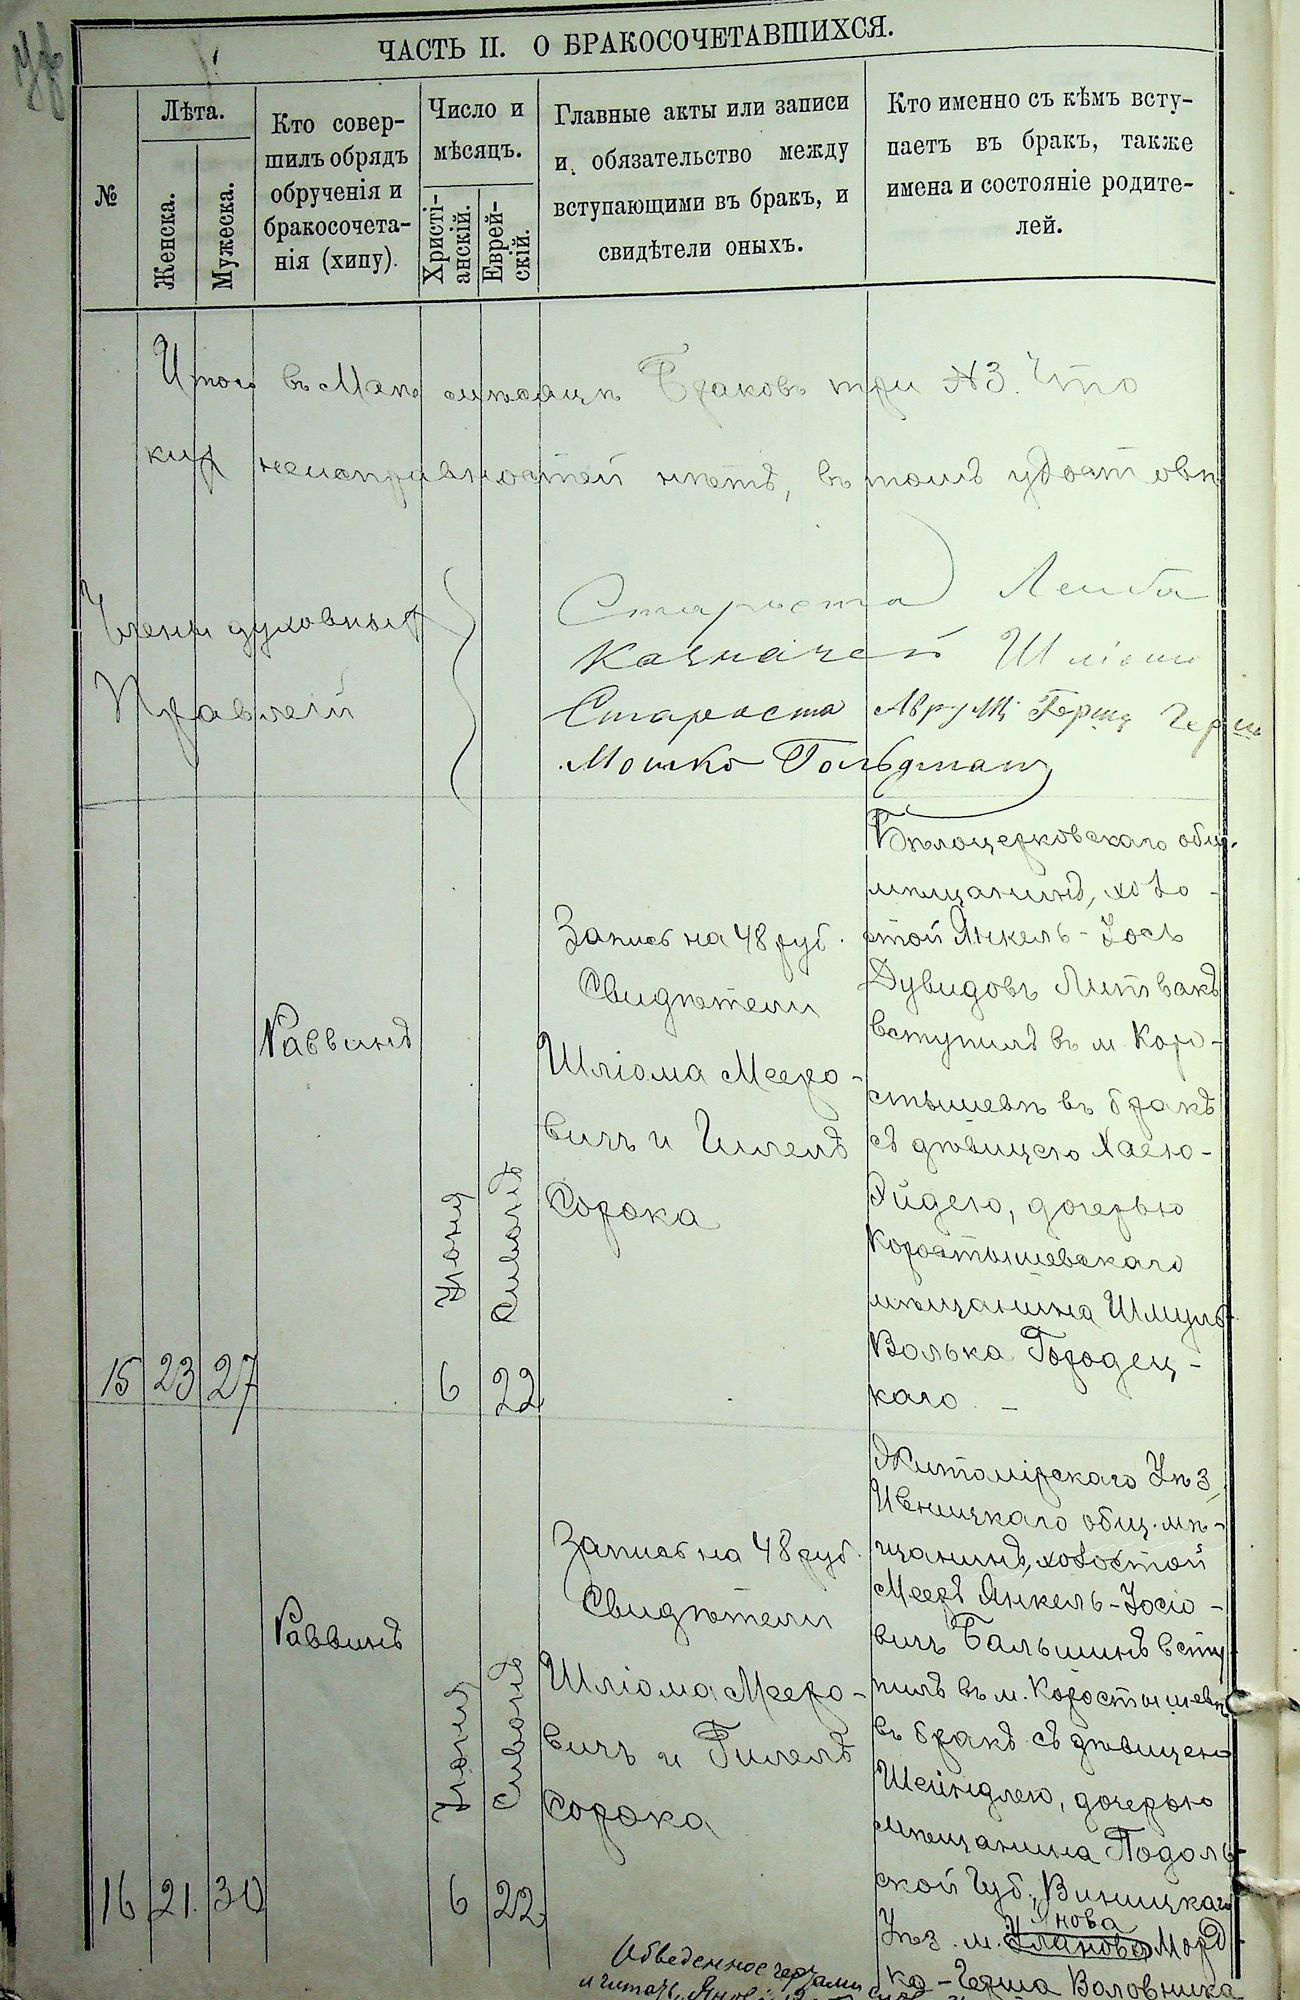 ЧАСТЬ II. О БРАКОСОЧЕТАВШИХСЯ.
№
Лѣта.
Женска.
Мужеска.
Кто совер-
шилъ обрядъ
обрученія и
бракосочета-
нія (хипу).
Число и
мѣсяцъ.
Христі-
анскій.
Еврей-
скій.
Главные акты или записи
и обязательство между
вступающими въ бракъ, и
свидѣтели оныхъ.
Кто именно съ кѣмъ всту-
паетъ въ бракъ, также
имена и состояніе родите-
лей.
Итого въ Маѣ мѣсяцѣ Браковъ три №3. Что
неисправностей нѣтъ, въ томъ удостовѣ
Члены духовныхъ
Правленій
Староста Лейба
Казначей Шліома
Староста Аврумъ Герша Герш
Мошко Гольдман
15
23
27
Раввинъ
Іюня
6
Сивонъ
22
Запись на 48 руб.
Свидѣтели
Шліома Мееро-
вичъ и Гилелъ
Сорока
Бѣлоцерковскаго общ.
мѣщанинъ, холо-
стой Янкель-Іосъ
Дувидовъ Литвакъ
вступилъ въ м. Коро-
стышевѣ въ бракъ
съ дѣвицею Хаею-
Эйдею, дочерью
Коростышевскаго
мѣщанина Шмуль-
Волька Городец-
каго.
16
21.
30
Раввинъ
Іюня
6
Сивонъ
22
Запись на 48 руб.
Свидѣтели
Шліома Мееро-
вичъ и Гилелъ
Сорока
Житомірскаго Уѣз,
Ивницкаго общ. мѣ-
щанинъ, холостой
Мееръ Янкель-Іосіо-
вичъ Бальшинъ всту-
пилъ въ м. Коростышевѣ
въ бракъ съ дѣвицею
Шейндлею, дочерью
мѣщанина Подоль-
ской Губ., Виницкаго
Янова
Уѣз. м. Уланова Морд
ко-Герша Воловника
Обведенное чертами
и читать Янов